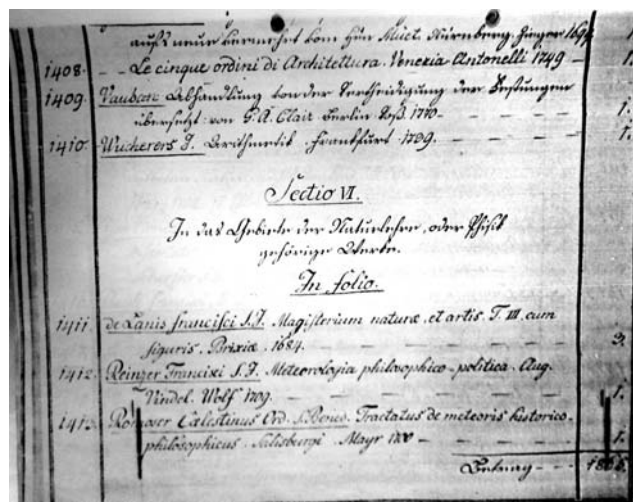 aufs neue vermehrt vom Hrn Auct. Nürnberg. Zieger 1697
1408. – – Le cinque ordini di Architettura. Venezia Antonelli 1749 – 1.
1409. Vauban Abhandlung von der Vertheidigung der Festungen
übersetzt von G. A. Clair Berlin 1770 – – – – 1.
1410. Wucherers J. Arithmetik. Frankfurt 1739. – – – – 1.
Sectio VI.
In das Gebiete der Naturlehre, oder Phisik
gehörige Werke.
In folio.
1411. de Lanis francisci S.J. Magisterium naturæ, et artis. T. III. cum
figuris. Brixiæ. 1684. – – – – 3.
1412. Reinzer Francisci S.J. Meteorologia philosophico-politica. Aug.
Vindel. Wolf 1709. – – – – 1.
Cælestinus Ord. S. Bened. Tractatus de meteoris historico-
philosophicus. Salisburgi Mayr 1700 – – – – 1.
Betrag – – –